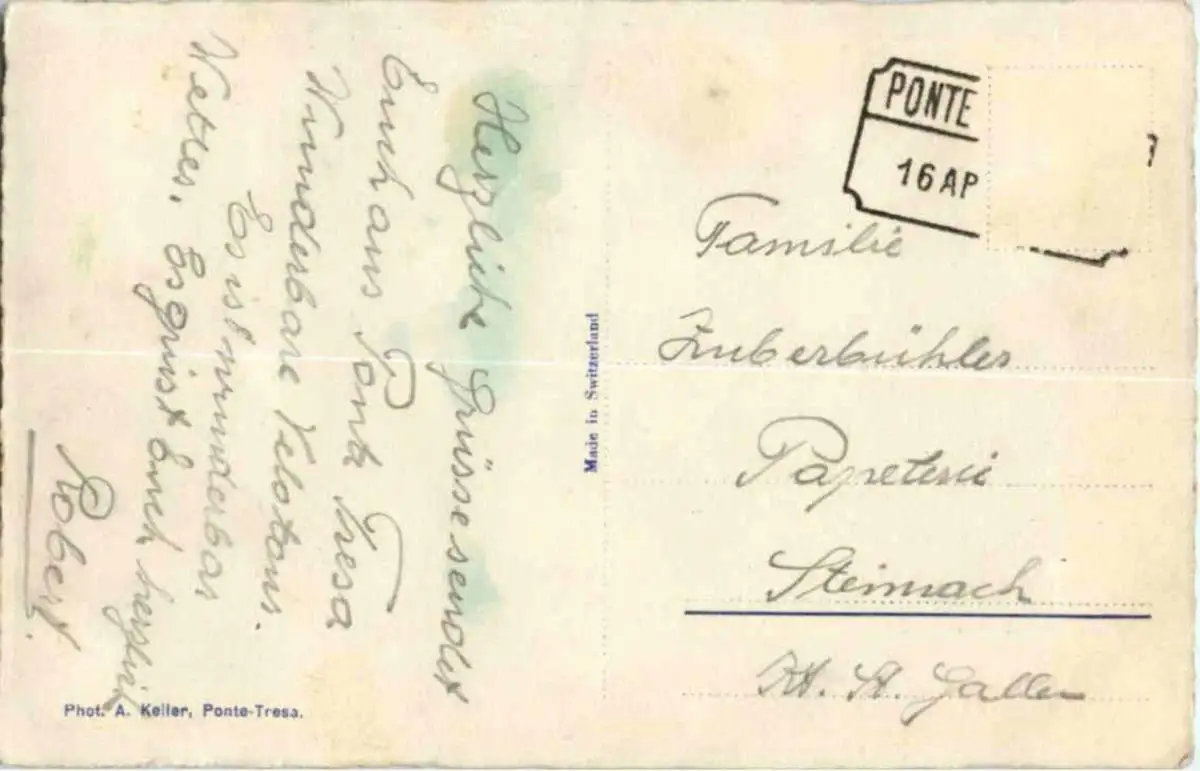 Herzliche Grüsse sendet
Euch aus Ponte Tresa
Wunderbare Velotour.
Es ist wunderbar
Wetter. Es grüsst Euch herzlich
Robert.
Phot. A. Keller, Ponte-Tresa.
Made in Switzerland
PONTE
16 AP
Familie
Zuberbühler
Papeterie
Steinach
Kt. St. Gallen